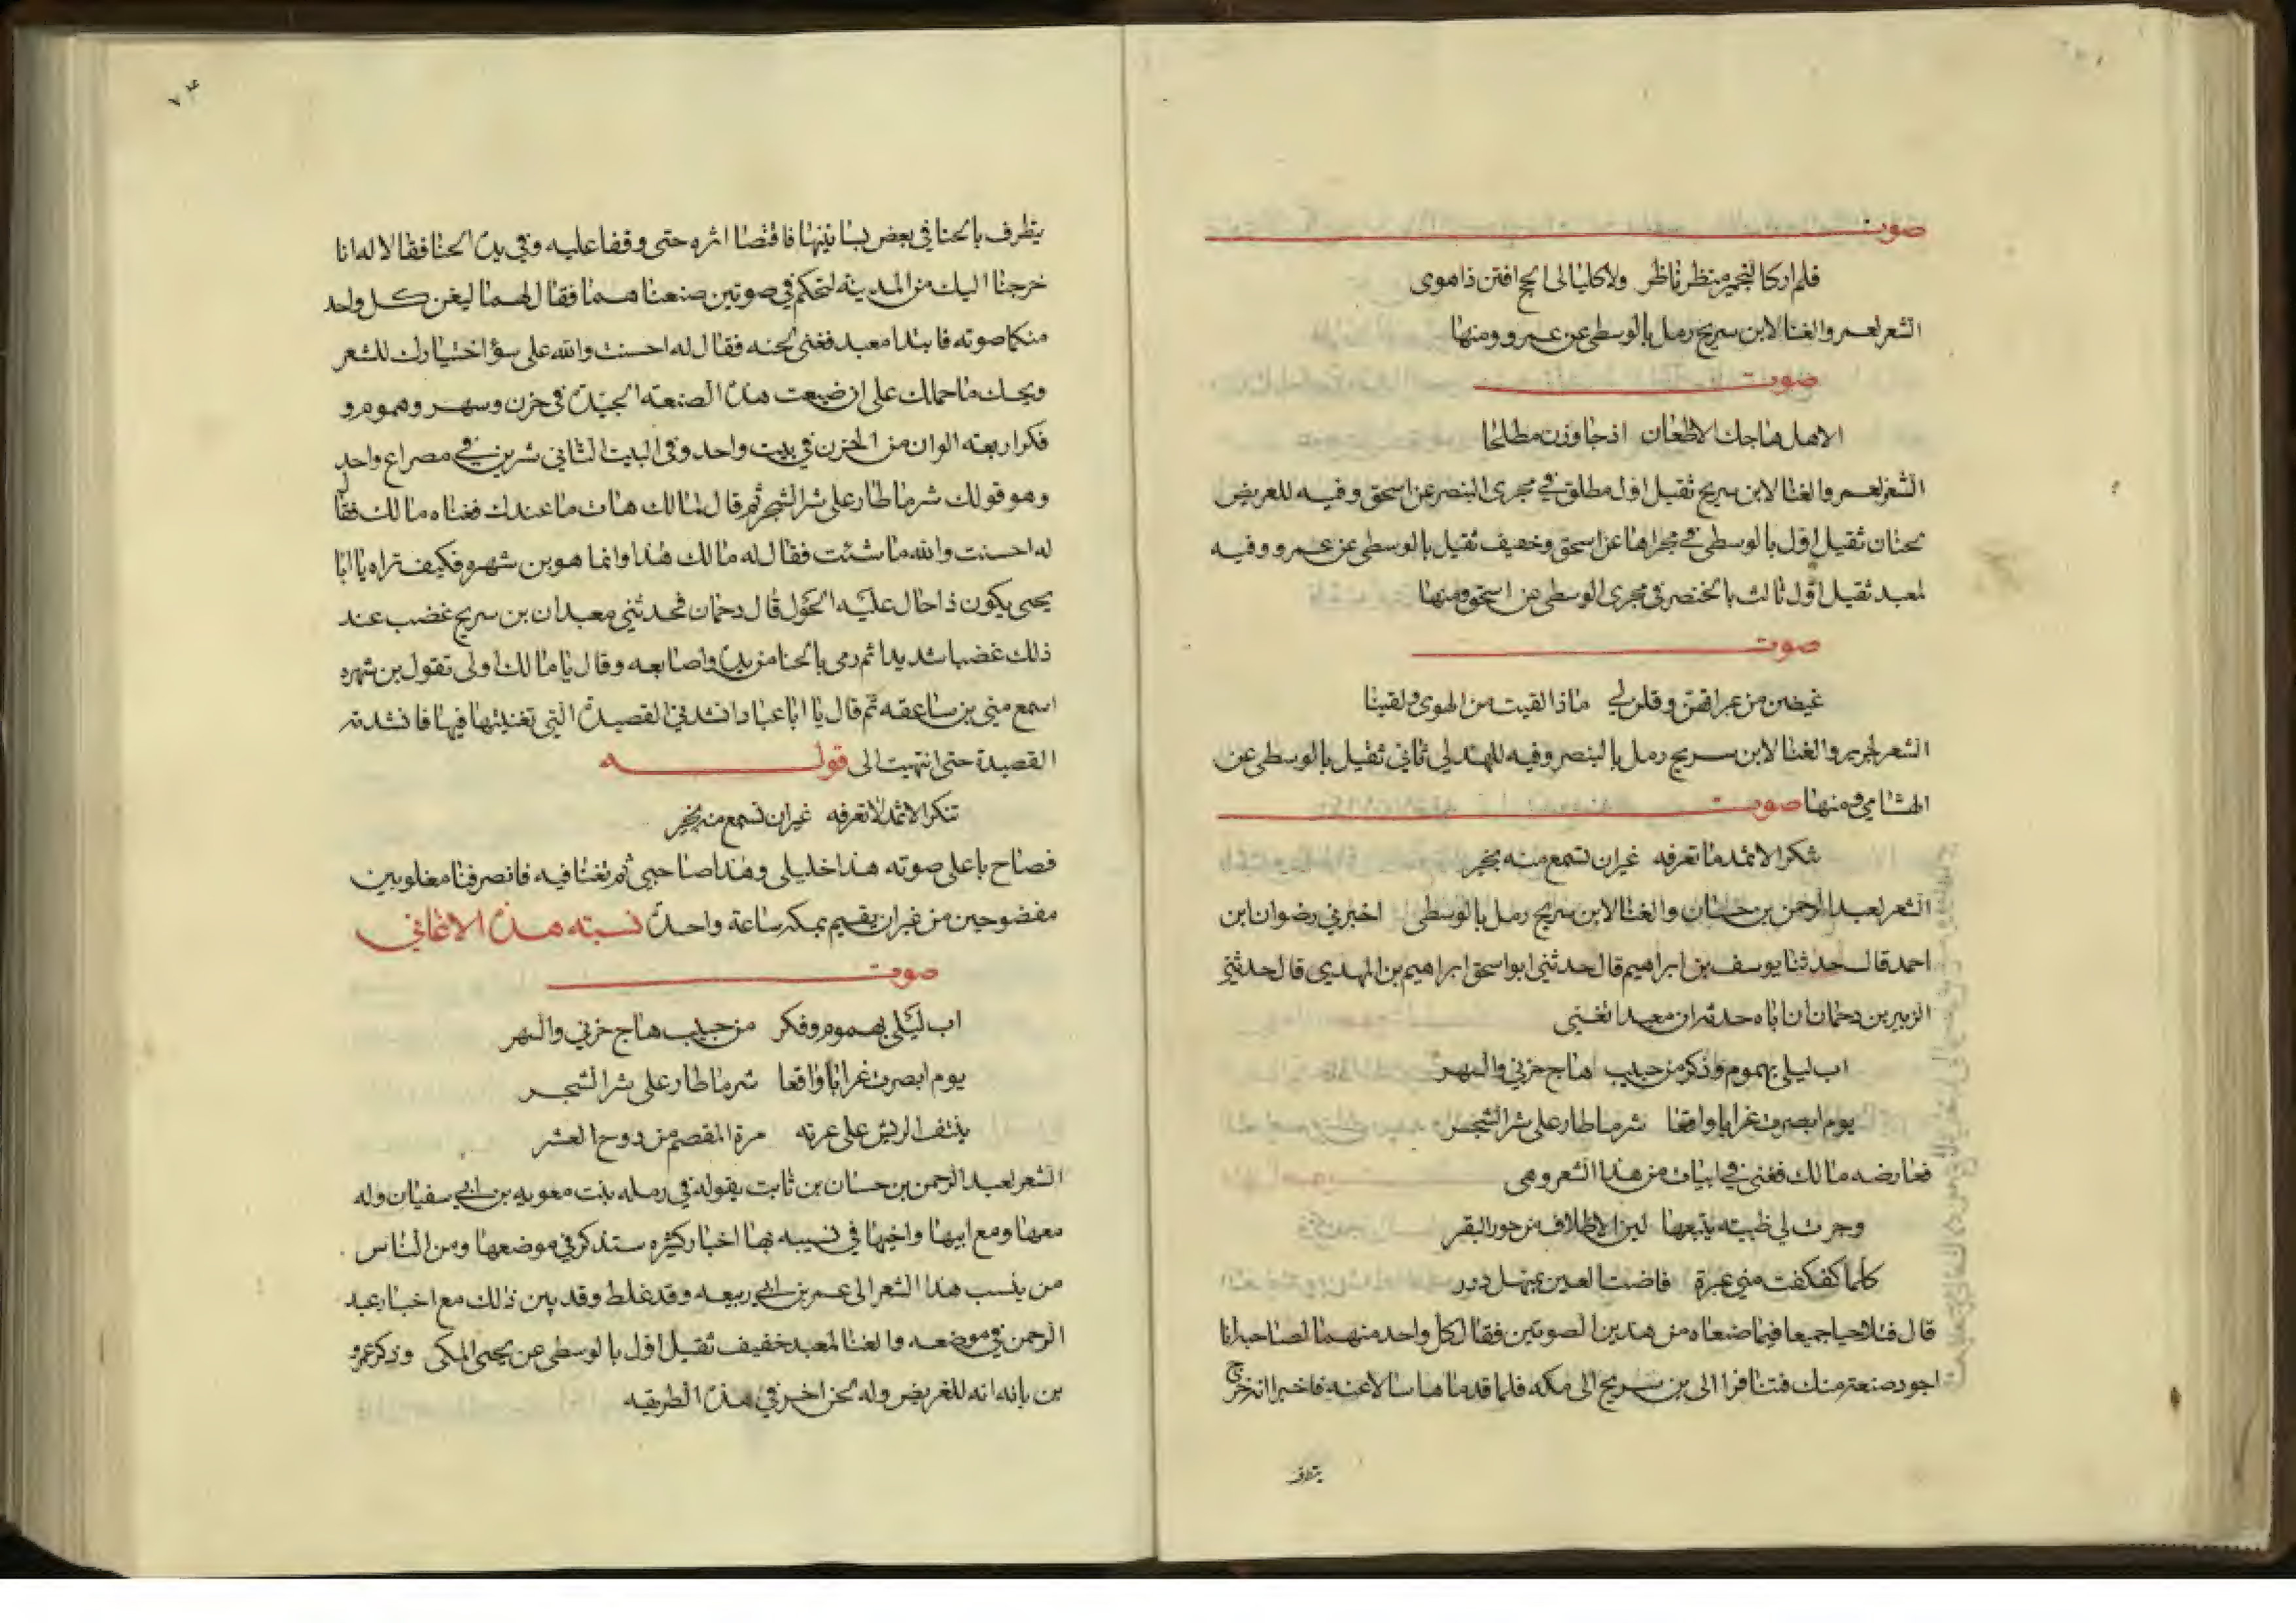 صوت
فلم اركالتجمير منظر ناظر ولا كليالى الحج افتن ذا هوى
الشعر لعمر والغنا لابن سريج رمل بالوسطى عن عمرو ومنها
صوت
الا هل هاجك الاظعان اذ جاوزن مطلحا
الشعر لعمر والغنا لابن سريج ثقيل اول مطلق في مجرى البنصر عن اسحق وفيه للغريض
لحنان ثقيل اول بالوسطى في مجراها عن اسحق وخفيف ثقيل بالوسطى عن عمرو وفيه
لمعبد ثقيل اول ثالث بالخنصر في مجرى الوسطى عن اسحق ومنها
صوت
غيضن من عبراتهن وقلن لي ماذا لقيت من الهوى ولقينا
الشعر لجرير والغنا لابن سريج رمل بالبنصر وفيه للهذلي ثاني ثقيل بالوسطى عن
الهشامي ومنها صوت
تنكر الاثمد ما تعرفه غير ان تسمع منه بخبر
الشعر لعبد الرحمن بن حسان والغنا لابن سريج رمل بالوسطى اخبرني رضوان ابن
احمد قال حدثنا يوسف بن ابراهيم قال حدثني ابو اسحق ابراهيم بن المهدي قال حدثني
الزبير بن دحمان ان اباه حدثه ان معبدا تغنى
اب ليلى بهموم وذكر من حبيب هاج حزني والسهر
يوم ابصرت غرابا واقعا شر ما طار على شر الشجر
فعارضه مالك فغنى في ابيات من هذا الشعر وهي
وجرت لي ظبية يتبعها لين الاظلاف من حور البقر
كلما كفكفت مني عبرة فاضت العين بمنهل درر
قال فتلاحيا جميعا فيما صنعاه من هذين الصوتين فقال كل واحد منهما لصاحبه انا
اجود صنعة منك فتنافرا الى بن سريج الى مكه فلما قدماها سالا عنه فاخبرا انه خرج
يتطرف
٧٤
يتطرف بالحنا في بعض بساتينها فاقتصا اثره حتى وقفا عليه وفي يده الحنا فقالا له انا
خرجنا اليك من المدينه لتحكم في صوتين صنعناهما فقال لهما ليغن كل واحد
منكما صوته فابتدا معبد فغنى لحنه فقال له احسنت والله على سوء اختيارك للشعر
ويحك ما حملك على ان ضيعت هذه الصنعه الجيده في حزن وسهر وهموم و
فكر اربعه الوان من الحزن في بيت واحد وفي البيت الثاني شرين في مصراع واحد
وهو قولك شر ما طار على شر الشجر ثم قال لمالك هات ما عندك فغناه مالك فقال
له احسنت والله ما شئت فقال له مالك هذا وانما هو بن شهره فكيف تراه يا ابا
يحيى يكون اذا حال عليه الحول قال دحمان فحدثني معبد ان بن سريج غضب عند
ذلك غضبا شديدا ثم رمى بالحنا من يده واصابعه وقال يا مالك اولي تقول بن شهره
اسمع مني بن ساعته ثم قال يا ابا عباد انشدني القصيده التي تغنيتما فيها فانشدته
القصيدة حتى انتهيت الى قوله
تنكر الاثمد لا تعرفه غير ان تسمع منه بخبر
فصاح باعلى صوته هذا خليلي وهذا صاحبي ثم تغنا فيه فانصرفنا مغلوبين
مفضوحين من غير ان يقيم بمكه ساعة واحده نسبته هذه الاغاني
صوت
اب ليلى بهموم وفكر من حبيب هاج حزني والسهر
يوم ابصرت غرابا واقعا شر ما طار على شر الشجر
ينتف الريش على عبرته مرة المقضم من دوح العشر
الشعر لعبد الرحمن بن حسان بن ثابت يقوله في رمله بنت معويه بن ابي سفيان وله
معها ومع ابيها واخيها في نسيبه بها اخبار كثيره ستذكر في موضعها ومن الناس
من ينسب هذا الشعر الى عمر بن ابي ربيعه وقد غلط وقد بين ذلك مع اخبار عبد
الرحمن في موضعه والغنا لمعبد خفيف ثقيل اول بالوسطى عن يحيى المكي وذكر عمرو
بن بانه انه للغريض وله لحن اخر في هذه الطريقه